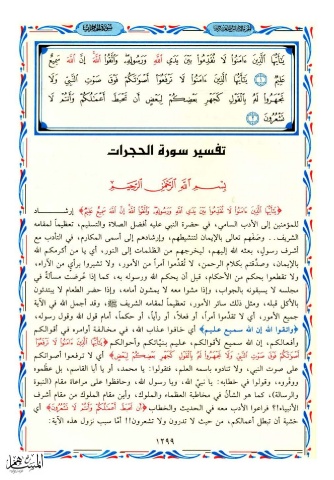 يَٰٓأَيُّهَا ٱلَّذِينَ ءَامَنُوا۟ لَا تُقَدِّمُوا۟ بَيْنَ يَدَىِ ٱللَّهِ وَرَسُولِهِۦ وَٱتَّقُوا۟ ٱللَّهَ إِنَّ ٱللَّهَ سَمِيعٌ
عَلِيمٌ ۝١ يَٰٓأَيُّهَا ٱلَّذِينَ ءَامَنُوا۟ لَا تَرْفَعُوٓا۟ أَصْوَٰتَكُمْ فَوْقَ صَوْتِ ٱلنَّبِىِّ وَلَا
تَجْهَرُوا۟ لَهُۥ بِٱلْقَوْلِ كَجَهْرِ بَعْضِكُمْ لِبَعْضٍ أَن تَحْبَطَ أَعْمَٰلُكُمْ وَأَنتُمْ لَا
تَشْعُرُونَ ۝٢
تفسير سورة الحجرات
بِسْمِ ٱللَّهِ ٱلرَّحْمَٰنِ ٱلرَّحِيمِ
﴿يَٰٓأَيُّهَا ٱلَّذِينَ ءَامَنُوا۟ لَا تُقَدِّمُوا۟ بَيْنَ يَدَىِ ٱللَّهِ وَرَسُولِهِۦ وَٱتَّقُوا۟ ٱللَّهَ إِنَّ ٱللَّهَ سَمِيعٌ عَلِيمٌ﴾ إرشاد
للمؤمنين إلى الأدب السامي، في حضرة النبي عليه أفضل الصلاة والتسليم، تعظيماً لمقامه
الشريف.. وصفهم تعالى بالإيمان لتنشيطهم، وإرشادهم إلى أسمى المكارم، في التأدب مع
أشرف رسولٍ، بعثه الله إليهم، ليخرجهم من الظلمات إلى النور، أي يا من أكرمكم الله
بالإيمان، وصدَّقتم بكلام الرحمن، لا تُقدِّموا أمراً من الأمور، ولا تشيروا برأي من الآراء،
ولا تقطعوا بحكمٍ من الأحكام، قبل أن يحكم الله ورسوله به، كما إذا عُرضت مسألةٌ في
مجلسه لا يسبقونه بالجواب، وإذا مشوا معه لا يمشون أمامه، وإذا حضر الطعام لا يبتدئون
بالأكل قبله، ومثل ذلك سائر الأمور، تعظيماً لمقامه الشريف ﷺ، وقد أجمل الله في الآية
جميع الأمور، أي لا تقدِّموا أمراً، أو فعلاً، أو رأياً، أو حكماً، أمام قول الله وقول رسوله،
﴿واتقوا الله إن الله سميع عليم﴾ أي خافوا عذاب الله، في مخالفة أوامره في أقوالكم
وأفعالكم، إن الله سميع لأقوالكم، عليم بنيَّاتكم وأحوالكم ﴿يَٰٓأَيُّهَا ٱلَّذِينَ ءَامَنُوا۟ لَا تَرْفَعُوٓا۟
أَصْوَٰتَكُمْ فَوْقَ صَوْتِ ٱلنَّبِىِّ وَلَا تَجْهَرُوا۟ لَهُۥ بِٱلْقَوْلِ كَجَهْرِ بَعْضِكُمْ لِبَعْضٍ﴾ أي لا ترفعوا أصواتكم
على صوت النبي، ولا تنادوه باسمه العلم، فتقولوا: يا محمد، أو يا أبا القاسم، بل عظِّموه
ووقِّروه، وقولوا في خطابه: يا نبيَّ الله، ويا رسول الله، وحافظوا على مراعاة مقام (النبوة
والرسالة)، كما هو الشأن في مخاطبة العظماء والملوك، وأين مقام الملوك من مقام أشرف
الأنبياء؟! فراعوا الأدب معه في الحديث والخطاب ﴿أَن تَحْبَطَ أَعْمَٰلُكُمْ وَأَنتُمْ لَا تَشْعُرُونَ﴾ أي
خشية أن تبطل أعمالكم، من حيث لا تدرون ولا تشعرون!! أمَّا سبب نزول هذه الآية:
١٢٩٩